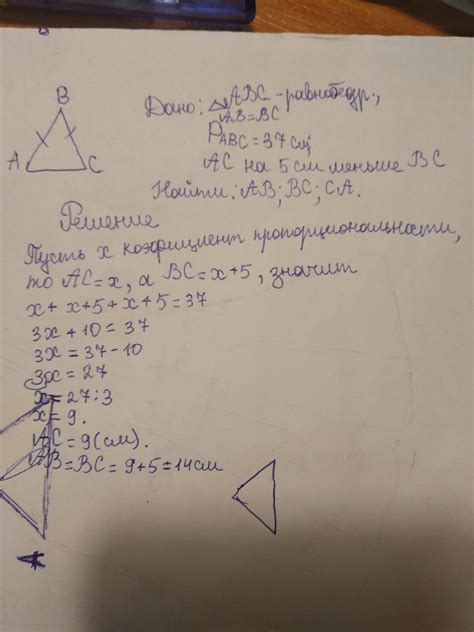 B
A
C
Дано: △ABC - равнобедр.,
AB=BC
P ABC = 37 см;
AC на 5 см меньше BC
Найти: AB; BC; CA.
Решение
Пусть x коэфициент пропорциональности,
то AC = x, а BC = x+5, значит
x + x+5 + x+5 = 37
3x + 10 = 37
3x = 37 - 10
3x = 27
x = 27:3
x = 9.
AC = 9 (см).
AB = BC = 9+5 = 14 см
A